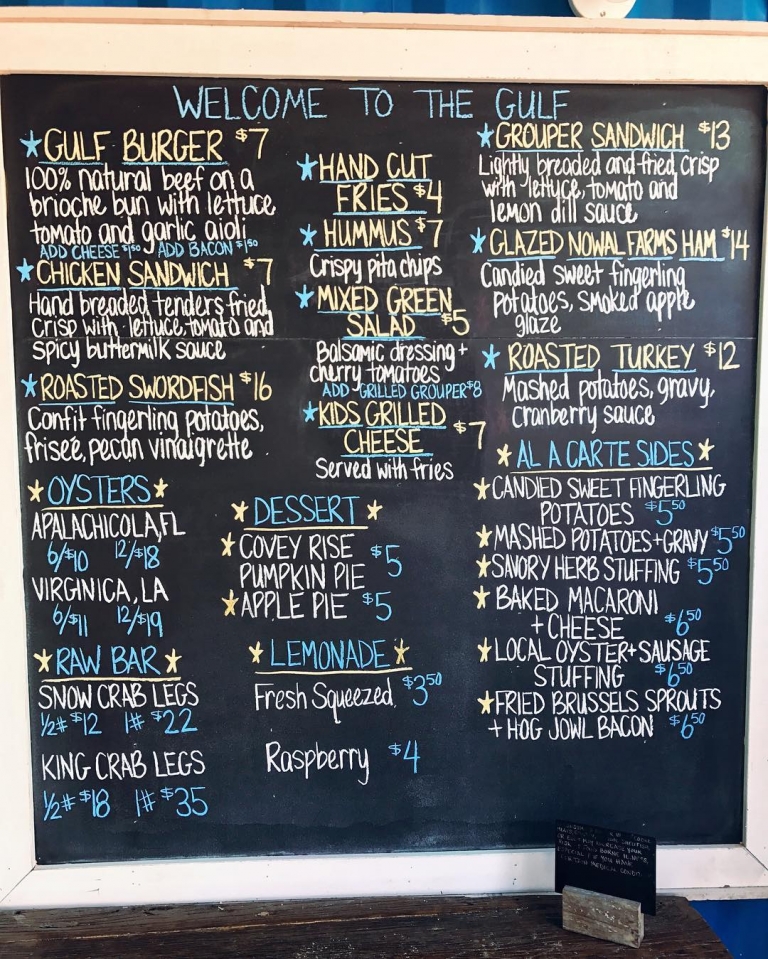 WELCOME TO THE GULF
GULF BURGER $7
100% natural beef on a
brioche bun with lettuce,
tomato and garlic aioli
ADD CHEESE $1.50 ADD BACON $1.50
CHICKEN SANDWICH $7
Hand breaded tenders fried
crisp with lettuce, tomato and
spicy buttermilk sauce
ROASTED SWORDFISH $16
Confit fingerling potatoes,
friseé, pecan vinaigrette
OYSTERS
APALACHICOLA, FL
6/$10 12/$18
VIRGINICA, LA
6/$11 12/$19
RAW BAR
SNOW CRAB LEGS
1/2# $12 1# $22
KING CRAB LEGS
1/2# $18 1# $35
HAND CUT
FRIES $4
HUMMUS $7
Crispy pita chips
MIXED GREEN
SALAD $5
Balsamic dressing +
cherry tomatoes
ADD GRILLED GROUPER $8
KIDS GRILLED
CHEESE $7
Served with fries
DESSERT
COVEY RISE
PUMPKIN PIE $5
APPLE PIE $5
LEMONADE
Fresh Squeezed $3.50
Raspberry $4
GROUPER SANDWICH $13
Lightly breaded and fried crisp
with lettuce, tomato and
lemon dill sauce
GLAZED NOWAL FARMS HAM $14
Candied sweet fingerling
potatoes, smoked apple
glaze
ROASTED TURKEY $12
Mashed potatoes, gravy,
cranberry sauce
AL A CARTE SIDES
CANDIED SWEET FINGERLING
POTATOES $5.50
MASHED POTATOES + GRAVY $5.50
SAVORY HERB STUFFING $5.50
BAKED MACARONI
+ CHEESE $6.50
LOCAL OYSTER + SAUSAGE
STUFFING $6.50
FRIED BRUSSELS SPROUTS
+ HOG JOWL BACON $6.50